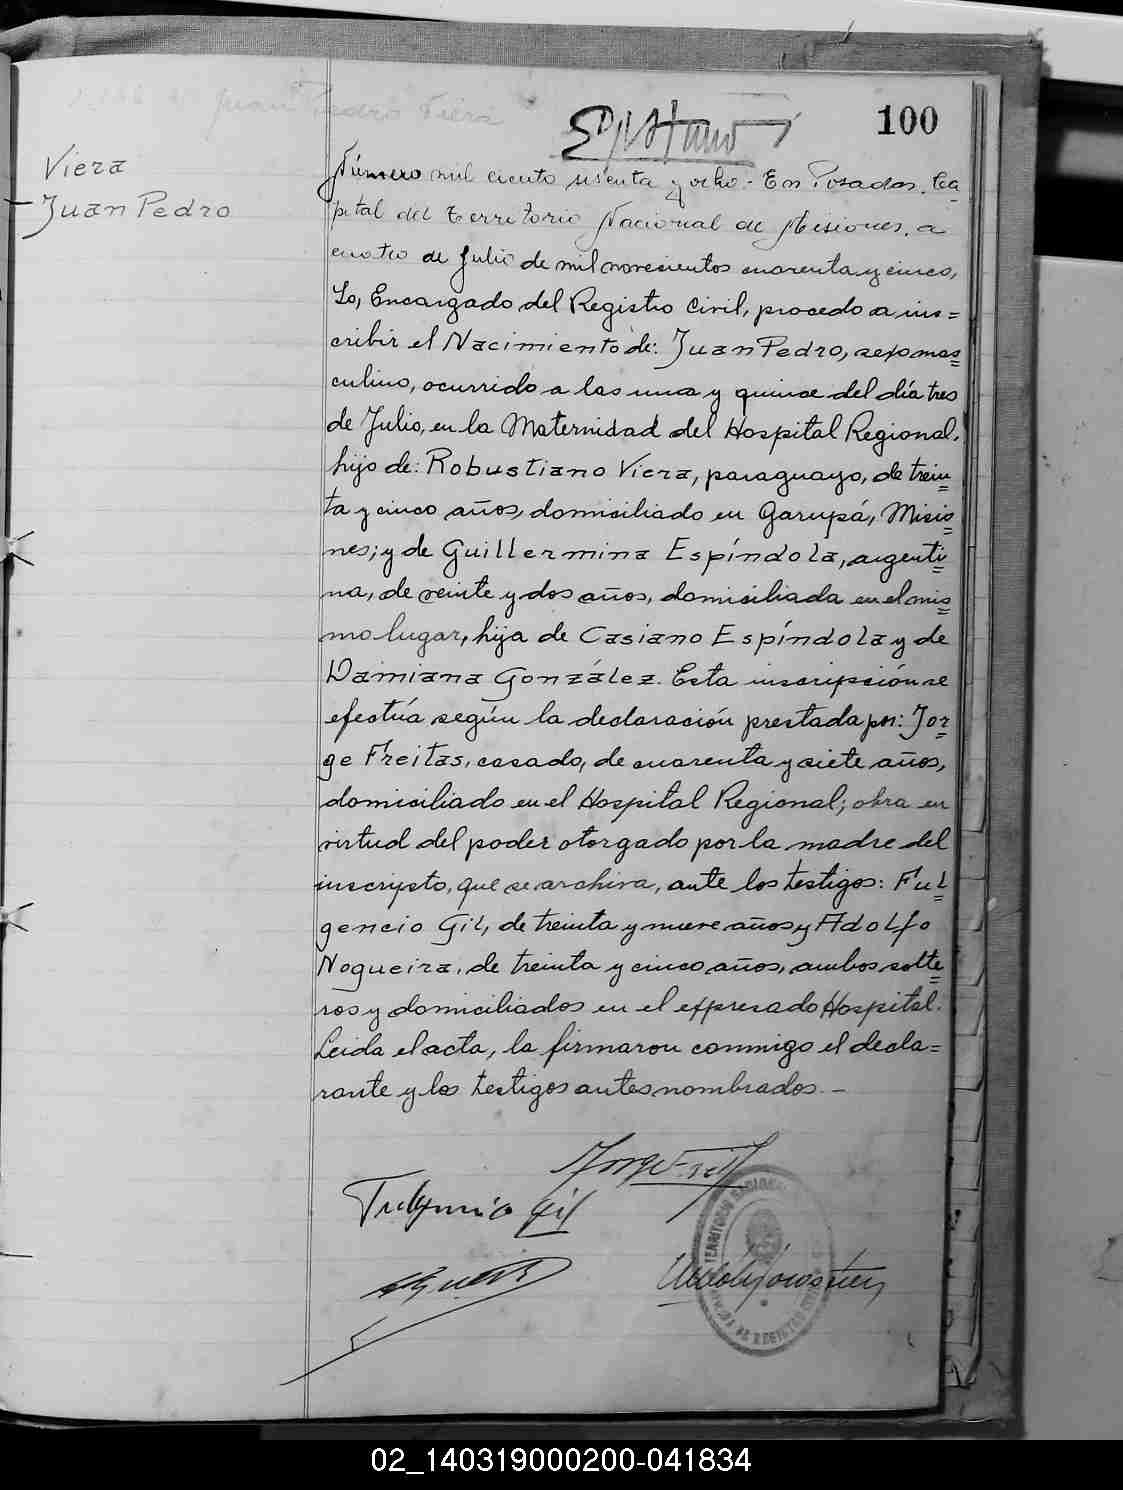 Juan Pedro Viera
100
Viera
Juan Pedro
Número mil ciento sesenta y ocho.- En Posadas, Ca-
pital del Territorio Nacional de Misiones, a
cuatro de Julio de mil novecientos cuarenta y cinco,
Yo, Encargado del Registro Civil, procedo a ins=
cribir el Nacimiento de: Juan Pedro, sexo mas=
culino, ocurrido a las una y quince del día tres
de Julio, en la Maternidad del Hospital Regional,
hijo de: Robustiano Viera, paraguayo, de trein=
ta y cinco años, domiciliado en Garupá, Misio=
nes; y de Guillermina Espíndola, argenti=
na, de veinte y dos años, domiciliada en el mis=
mo lugar, hija de Casiano Espíndola y de
Damiana González. Esta inscripción se
efectúa según la declaración prestada por: Jor=
ge Freitas, casado, de cuarenta y siete años,
domiciliado en el Hospital Regional; obra en
virtud del poder otorgado por la madre del
inscripto, que se archiva, ante los testigos: Ful=
gencio Gil, de treinta y nueve años y Adolfo
Nogueira, de treinta y cinco años, ambos solte=
ros y domiciliados en el expresado Hospital.
Leida el acta, la firmaron conmigo el decla=
rante y los testigos antes nombrados.-
Fulgencio Gil
TERRITORIO NACIONAL
REGISTRO CIVIL
02_140319000200-041834